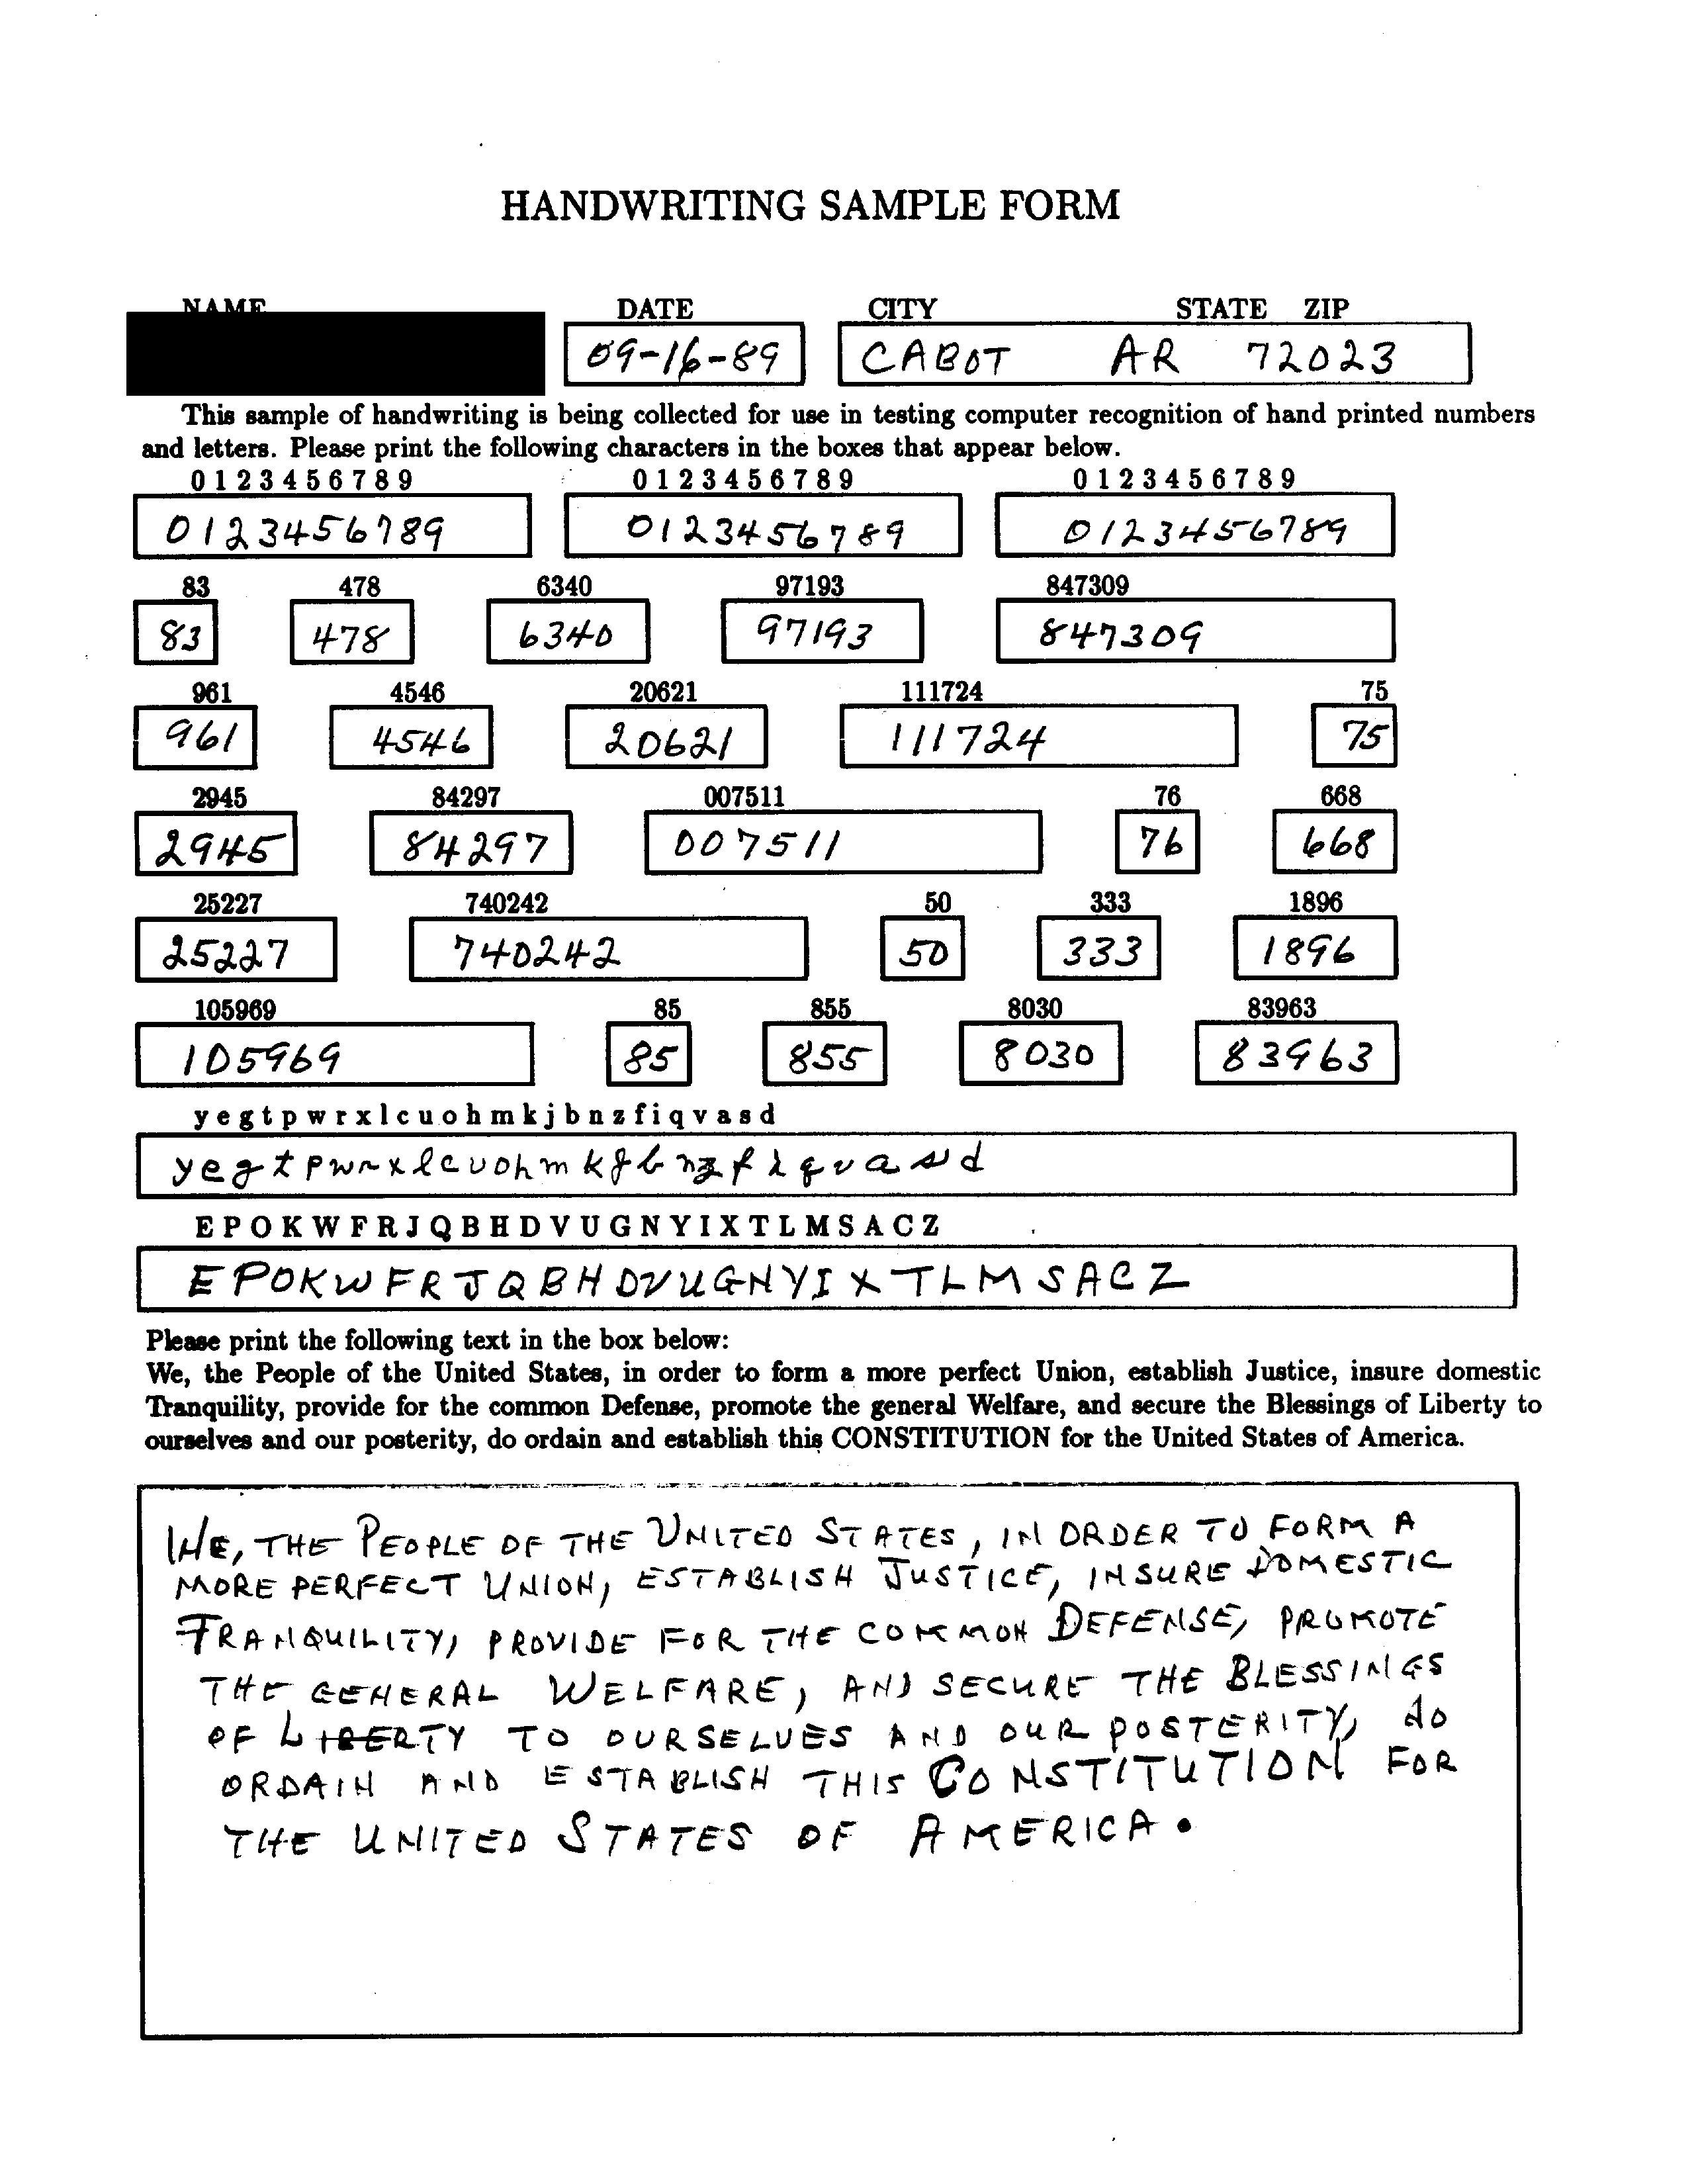 HANDWRITING SAMPLE FORM
NAME DATE CITY STATE ZIP
09-16-89 CABOT AR 72023
This sample of handwriting is being collected for use in testing computer recognition of hand printed numbers
and letters. Please print the following characters in the boxes that appear below.
0 1 2 3 4 5 6 7 8 9 0 1 2 3 4 5 6 7 8 9 0 1 2 3 4 5 6 7 8 9
0123456789 0123456789 0123456789
83 478 6340 97193 847309
83 478 6340 97193 847309
961 4546 20621 111724 75
961 4546 20621 111724 75
2945 84297 007511 76 668
2945 84297 007511 76 668
25227 740242 50 333 1896
25227 740242 50 333 1896
105969 85 855 8030 83963
105969 85 855 8030 83963
y e g t p w r x l c u o h m k j b n z f i q v a s d
y e g t p w r x l c u o h m k j b n z f i q v a s d
E P O K W F R J Q B H D V U G N Y I X T L M S A C Z
E P O K W F R J Q B H D V U G N Y I X T L M S A C Z
Please print the following text in the box below:
We, the People of the United States, in order to form a more perfect Union, establish Justice, insure domestic
Tranquility, provide for the common Defense, promote the general Welfare, and secure the Blessings of Liberty to
ourselves and our posterity, do ordain and establish this CONSTITUTION for the United States of America.
WE, THE PEOPLE OF THE UNITED STATES, IN ORDER TO FORM A
MORE PERFECT UNION, ESTABLISH JUSTICE, INSURE DOMESTIC
TRANQUILITY, PROVIDE FOR THE COMMON DEFENSE, PROMOTE
THE GENERAL WELFARE, AND SECURE THE BLESSINGS
OF LIBERTY TO OURSELVES AND OUR POSTERITY, do
ORDAIN AND ESTABLISH THIS CONSTITUTION FOR
THE UNITED STATES OF AMERICA.